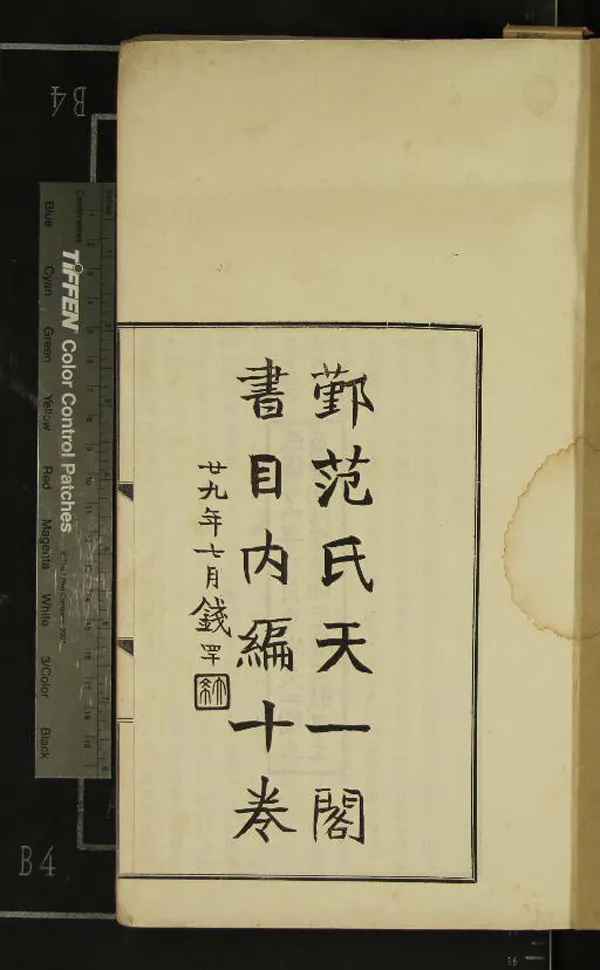 鄞范氏天一閣
書目内編十卷
廿九年七月錢罕
B4
TIFFEN Color Control Patches
Blue Cyan Green Yellow Red Magenta White 3/Color Black
Centimetres
B4